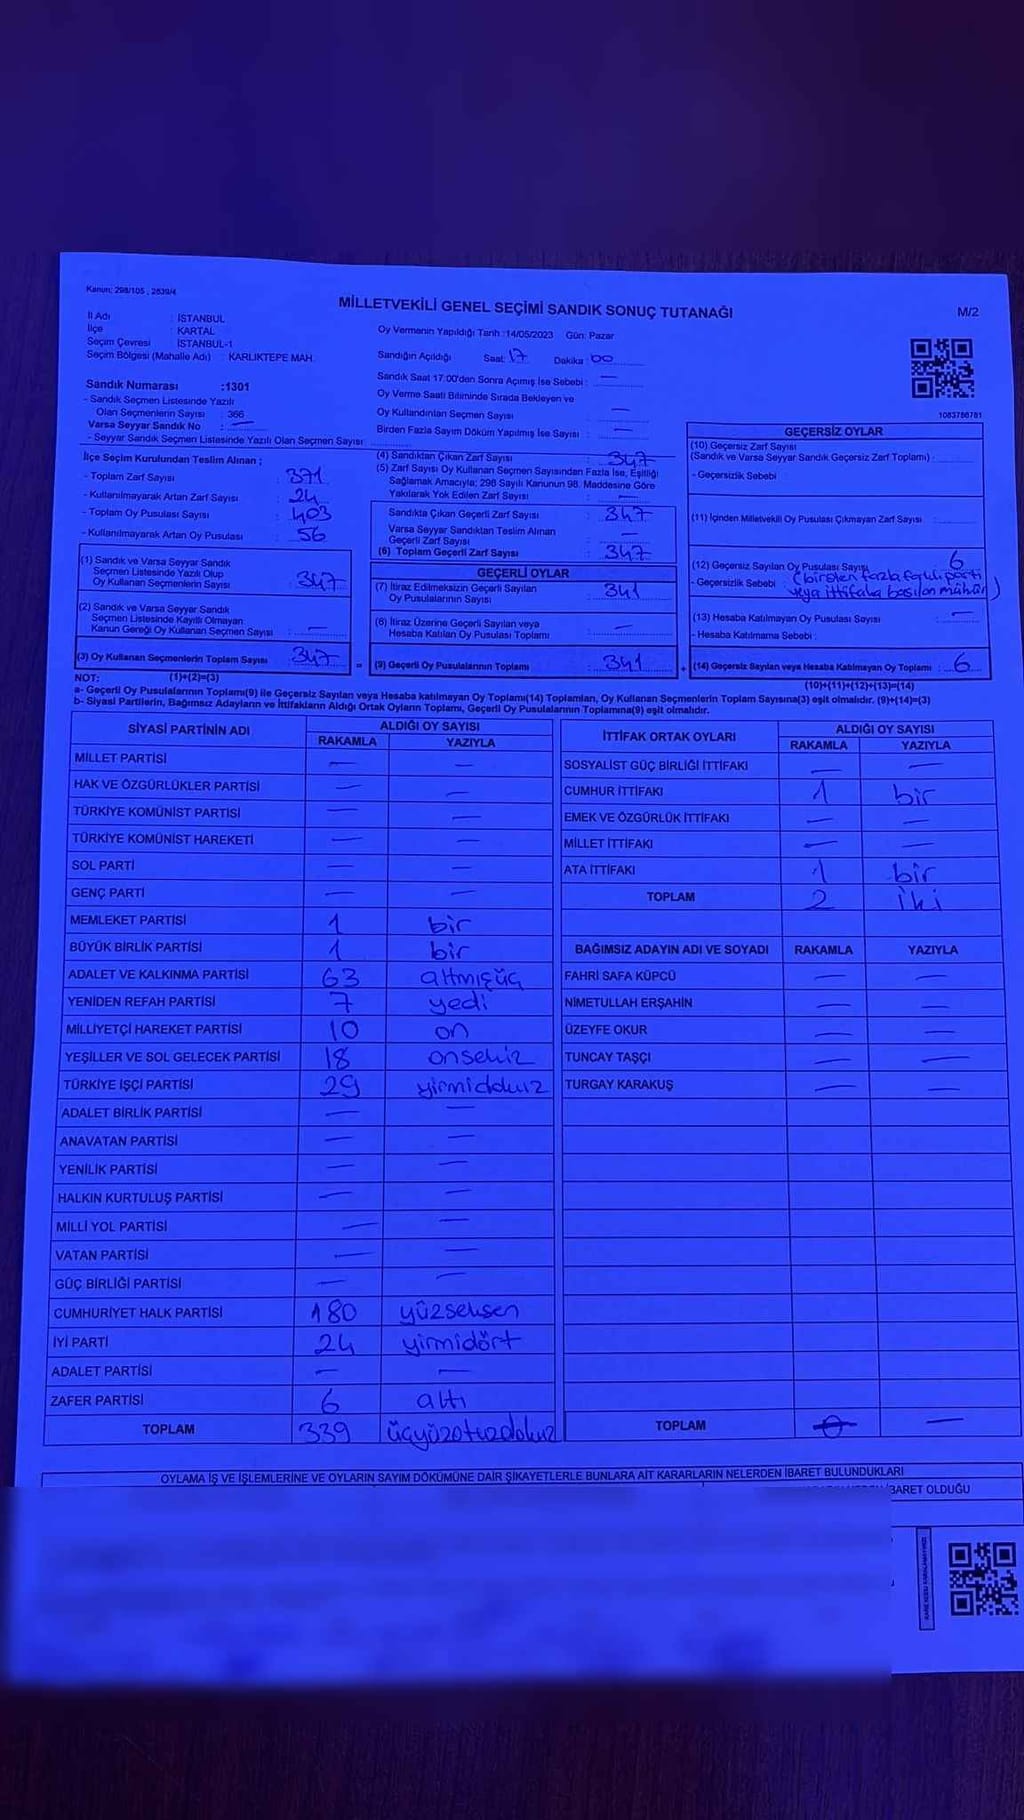 Kanun: 298/105 , 2839/4
MİLLETVEKİLİ GENEL SEÇİMİ SANDIK SONUÇ TUTANAĞI
M/2
İl Adı : İSTANBUL
İlçe : KARTAL
Seçim Çevresi : İSTANBUL-1
Seçim Bölgesi (Mahalle Adı) : KARLIKTEPE MAH.
Oy Vermenin Yapıldığı Tarih :14/05/2023 Gün: Pazar
Sandığın Açıldığı Saat: 17 Dakika: 00
Sandık Saat 17:00'den Sonra Açımış İse Sebebi : —
Oy Verme Saati Bitiminde Sırada Bekleyen ve
Oy Kullandırılan Seçmen Sayısı : —
Birden Fazla Sayım Döküm Yapılmış İse Sayısı : —
1083786781
Sandık Numarası :1301
- Sandık Seçmen Listesinde Yazılı
Olan Seçmenlerin Sayısı : 366
Varsa Seyyar Sandık No : —
- Seyyar Sandık Seçmen Listesinde Yazılı Olan Seçmen Sayısı :
İlçe Seçim Kurulundan Teslim Alınan ;
- Toplam Zarf Sayısı : 371
- Kullanılmayarak Artan Zarf Sayısı : 24
- Toplam Oy Pusulası Sayısı : 403
- Kullanılmayarak Artan Oy Pusulası : 56
(1) Sandık ve Varsa Seyyar Sandık
Seçmen Listesinde Yazılı Olup
Oy Kullanan Seçmenlerin Sayısı : 347
(2) Sandık ve Varsa Seyyar Sandık
Seçmen Listesinde Kayıtlı Olmayan
Kanun Gereği Oy Kullanan Seçmen Sayısı : —
(3) Oy Kullanan Seçmenlerin Toplam Sayısı : 347
(4) Sandıktan Çıkan Zarf Sayısı : 347
(5) Zarf Sayısı Oy Kullanan Seçmen Sayısından Fazla İse, Eşitliği
Sağlamak Amacıyla; 298 Sayılı Kanunun 98. Maddesine Göre
Yakılarak Yok Edilen Zarf Sayısı : —
Sandıkta Çıkan Geçerli Zarf Sayısı : 347
Varsa Seyyar Sandıktan Teslim Alınan
Geçerli Zarf Sayısı : —
(6) Toplam Geçerli Zarf Sayısı : 347
GEÇERLİ OYLAR
(7) İtiraz Edilmeksizin Geçerli Sayılan
Oy Pusulalarının Sayısı : 341
(8) İtiraz Üzerine Geçerli Sayılan veya
Hesaba Katılan Oy Pusulası Toplamı : —
= (9) Geçerli Oy Pusulalarının Toplamı : 341
GEÇERSİZ OYLAR
(10) Geçersiz Zarf Sayısı
(Sandık ve Varsa Seyyar Sandık Geçersiz Zarf Toplamı) :
- Geçersizlik Sebebi :
(11) İçinden Milletvekili Oy Pusulası Çıkmayan Zarf Sayısı :
(12) Geçersiz Sayılan Oy Pusulası Sayısı : 6
- Geçersizlik Sebebi : (birden fazla farklı parti
veya ittifaka basılan mühür)
(13) Hesaba Katılmayan Oy Pusulası Sayısı : —
- Hesaba Katılmama Sebebi :
+ (14) Geçersiz Sayılan veya Hesaba Katılmayan Oy Toplamı : 6
NOT: (1)+(2)=(3)
(10)+(11)+(12)+(13)=(14)
a- Geçerli Oy Pusulalarının Toplamı(9) ile Geçersiz Sayılan veya Hesaba katılmayan Oy Toplamı(14) Toplamları, Oy Kullanan Seçmenlerin Toplam Sayısına(3) eşit olmalıdır. (9)+(14)=(3)
b- Siyasi Partilerin, Bağımsız Adayların ve İttifakların Aldığı Ortak Oyların Toplamı, Geçerli Oy Pusulalarının Toplamına(9) eşit olmalıdır.
SİYASİ PARTİNİN ADI ALDIĞI OY SAYISI
RAKAMLA YAZIYLA
MİLLET PARTİSİ — —
HAK VE ÖZGÜRLÜKLER PARTİSİ — —
TÜRKİYE KOMÜNİST PARTİSİ — —
TÜRKİYE KOMÜNİST HAREKETİ — —
SOL PARTİ — —
GENÇ PARTİ — —
MEMLEKET PARTİSİ 1 bir
BÜYÜK BİRLİK PARTİSİ 1 bir
ADALET VE KALKINMA PARTİSİ 63 altmışüç
YENİDEN REFAH PARTİSİ 7 yedi
MİLLİYETÇİ HAREKET PARTİSİ 10 on
YEŞİLLER VE SOL GELECEK PARTİSİ 18 onsekiz
TÜRKİYE İŞÇİ PARTİSİ 29 yirmidokuz
ADALET BİRLİK PARTİSİ — —
ANAVATAN PARTİSİ — —
YENİLİK PARTİSİ — —
HALKIN KURTULUŞ PARTİSİ — —
MİLLİ YOL PARTİSİ — —
VATAN PARTİSİ — —
GÜÇ BİRLİĞİ PARTİSİ — —
CUMHURİYET HALK PARTİSİ 180 yüzseksen
İYİ PARTİ 24 yirmidört
ADALET PARTİSİ — —
ZAFER PARTİSİ 6 altı
TOPLAM 339 üçyüzotuzdokuz
İTTİFAK ORTAK OYLARI ALDIĞI OY SAYISI
RAKAMLA YAZIYLA
SOSYALİST GÜÇ BİRLİĞİ İTTİFAKI — —
CUMHUR İTTİFAKI 1 bir
EMEK VE ÖZGÜRLÜK İTTİFAKI — —
MİLLET İTTİFAKI — —
ATA İTTİFAKI 1 bir
TOPLAM 2 iki
BAĞIMSIZ ADAYIN ADI VE SOYADI RAKAMLA YAZIYLA
FAHRİ SAFA KÜPCÜ — —
NİMETULLAH ERŞAHİN — —
ÜZEYFE OKUR — —
TUNCAY TAŞÇI — —
TURGAY KARAKUŞ — —
TOPLAM 0 —
OYLAMA İŞ VE İŞLEMLERİNE VE OYLARIN SAYIM DÖKÜMÜNE DAİR ŞİKAYETLERLE BUNLARA AİT KARARLARIN NELERDEN İBARET BULUNDUKLARI
İBARET OLDUĞU